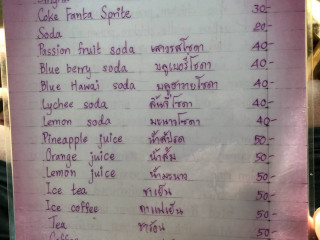 Coke Fanta Sprite 30.-
Soda 20.-
Passion fruit soda เสาวรสโซดา 40.-
Blue berry soda บลูเบอรี่โซดา 40.-
Blue Hawai soda บลูฮาวายโซดา 40.-
Lychee soda ลิ้นจี่โซดา 40.-
Lemon soda มะนาวโซดา 40.-
Pineapple juice น้ำสัปรด 50.-
Orange juice น้ำส้ม 50.-
Lemon juice น้ำมะนาว 50.-
Ice tea ชาเย็น 50.-
Ice coffee กาแฟเย็น 50.-
Tea ชาร้อน 50.-
Coffee